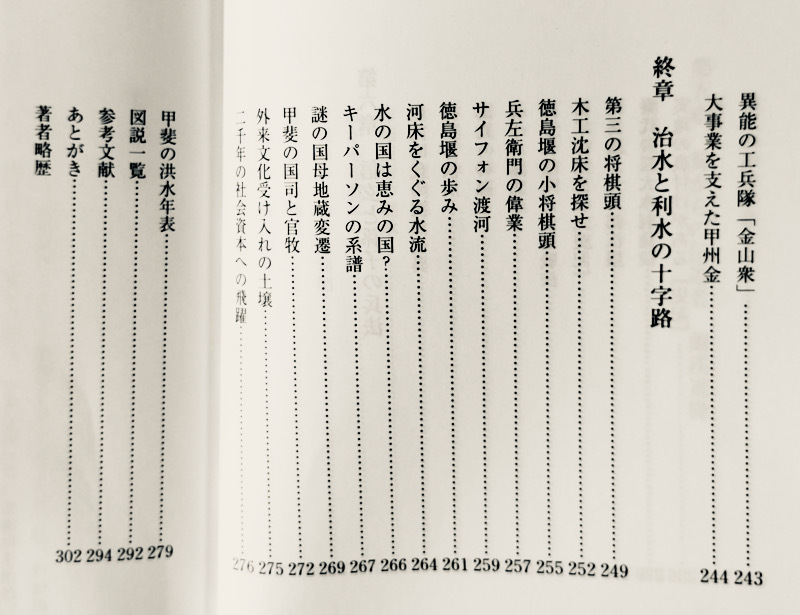 異能の工兵隊「金山衆」……243
大事業を支えた甲州金……244
終章 治水と利水の十字路
第三の将棋頭……249
木工沈床を探せ……252
徳島堰の小将棋頭……255
兵左衛門の偉業……257
サイフォン渡河……259
徳島堰の歩み……261
河床をくぐる水流……264
水の国は恵みの国?……266
キーパーソンの系譜……267
謎の国母地蔵変遷……269
甲斐の国司と官牧……272
外来文化受け入れの土壌……275
二千年の社会資本への飛躍……276
甲斐の洪水年表……279
図説一覧……292
参考文献……294
あとがき……302
著者略歴